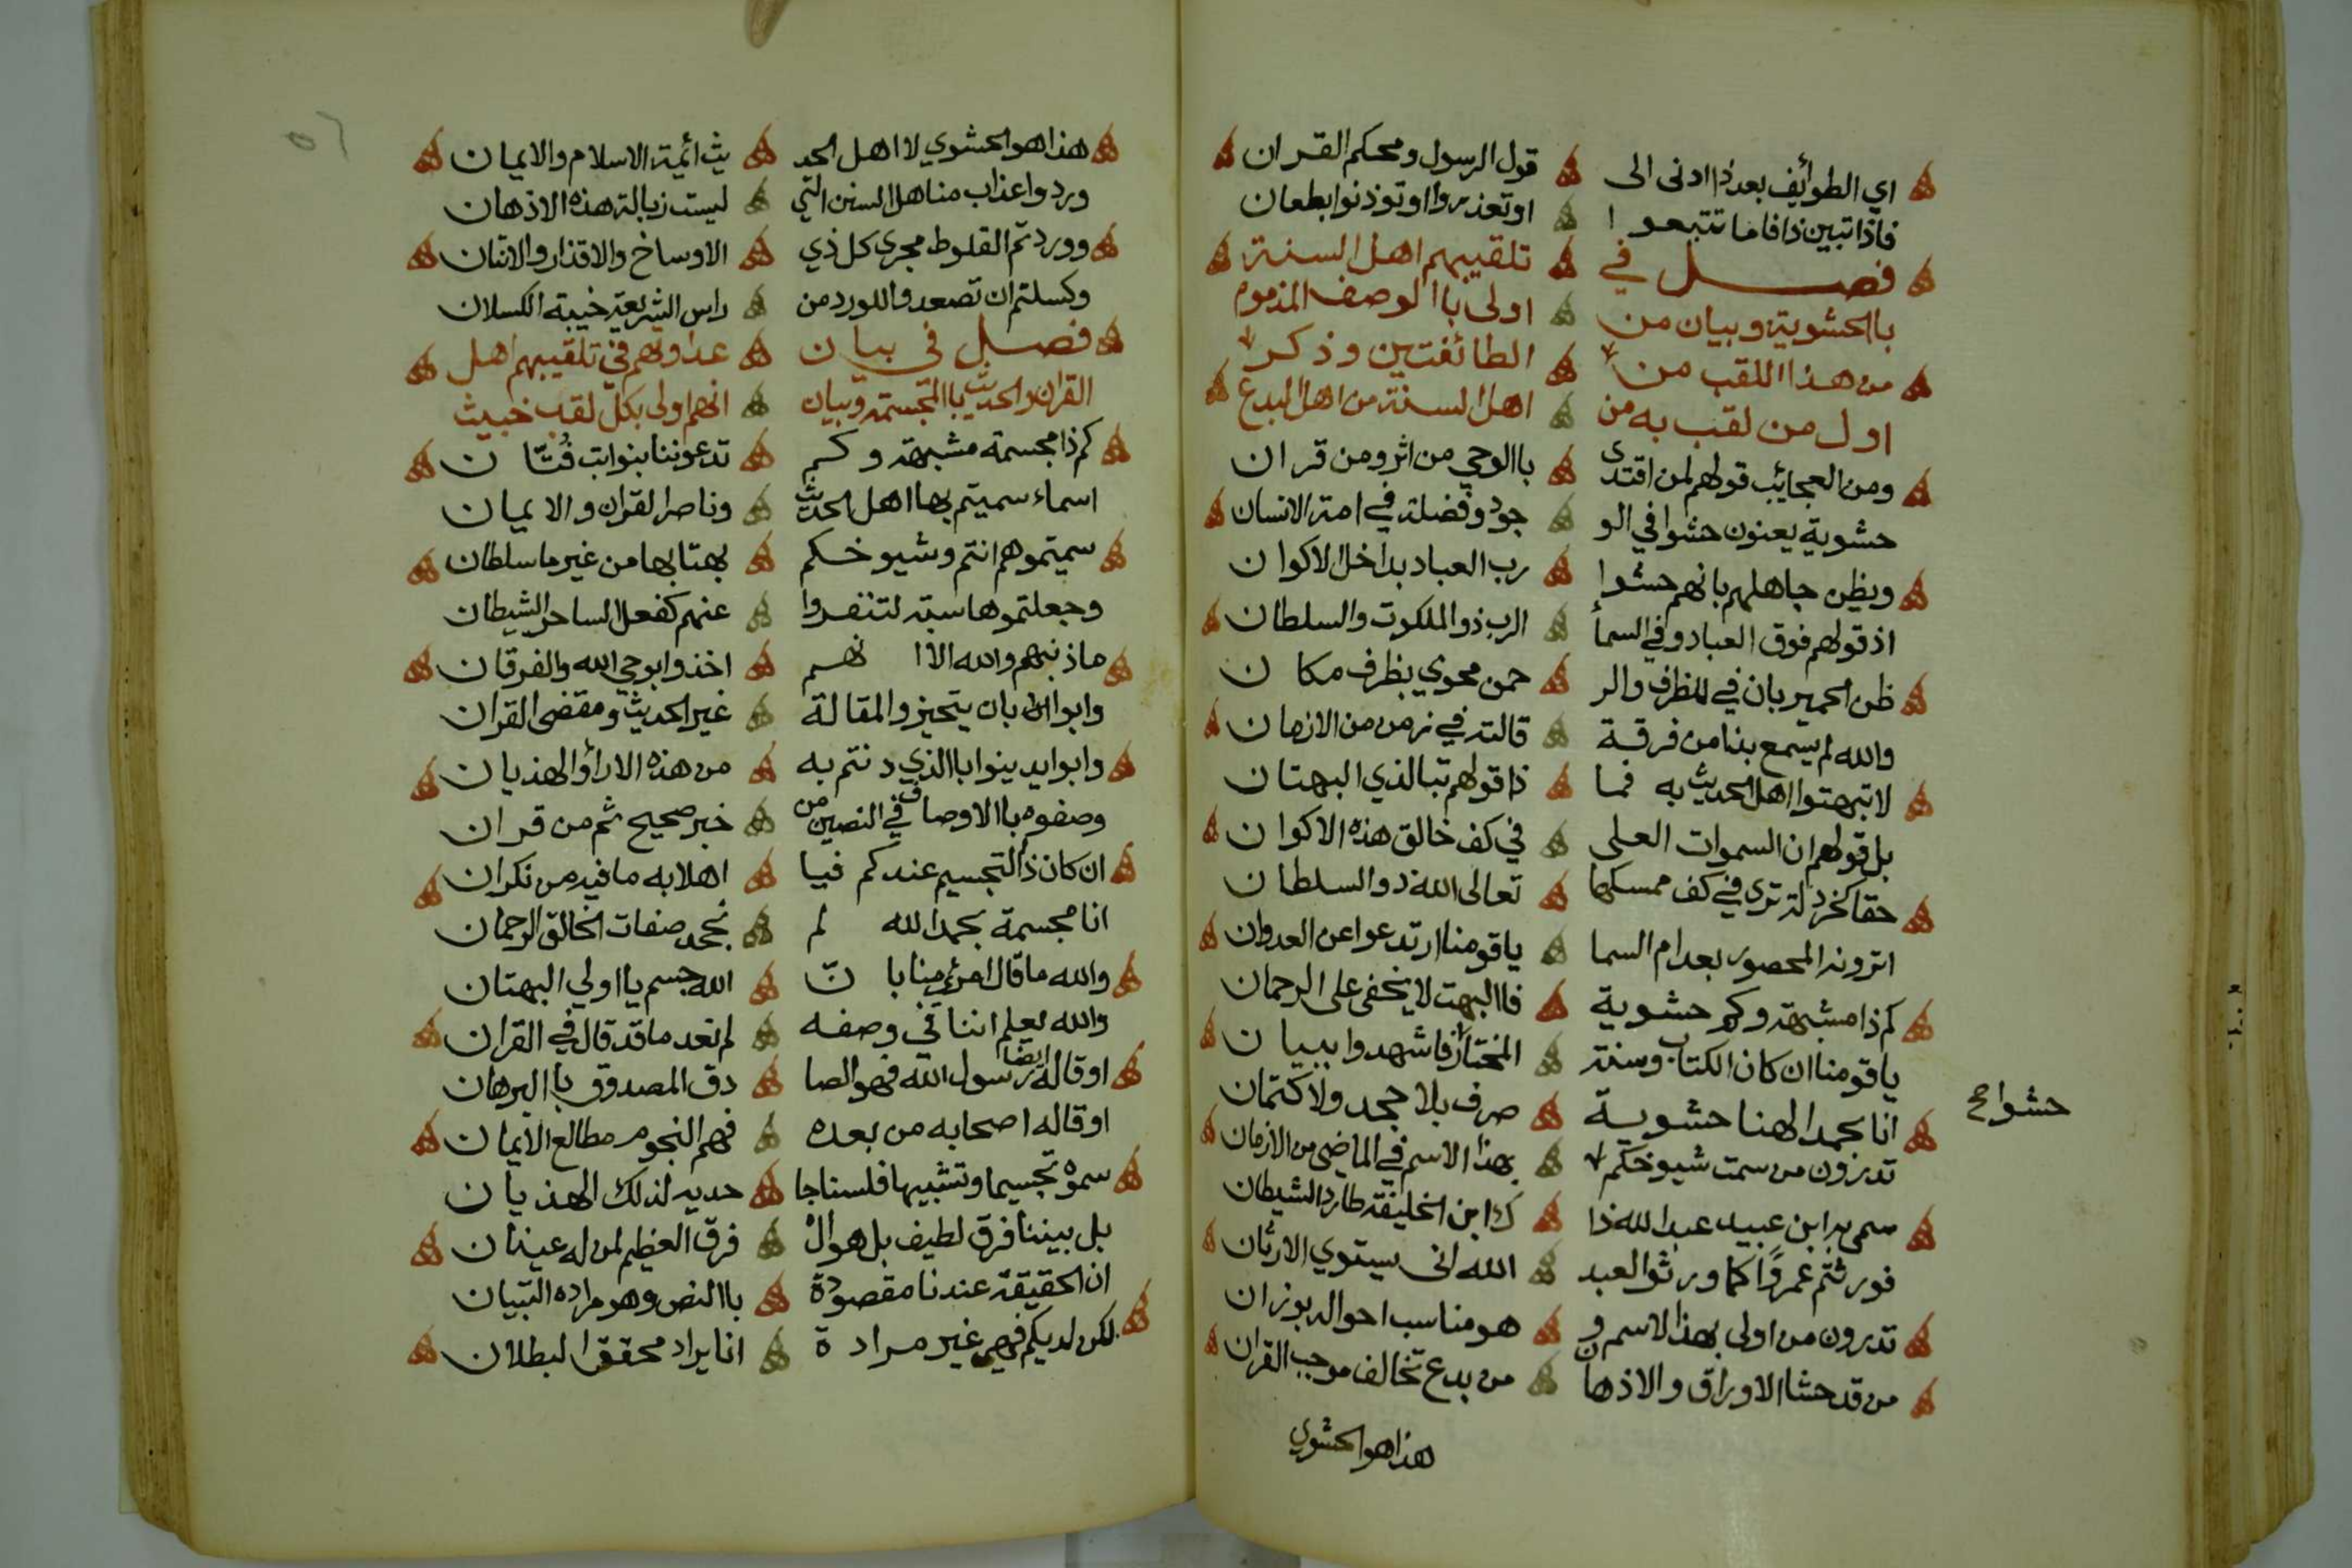 اي الطوائف بعد ذا ادنى الى قول الرسول ومحكم القران
فاذا تبين ذا فاما تتبعوا او تعذروا او توذنوا بطعان
فصل في تلقيبهم اهل السنة
بالحشوية وبيان من اولى باالوصف المذموم
من هذا اللقب من الطائفتين وذكر
اول من لقب به من اهل السنة من اهل البدع
ومن العجائب قولهم لمن اقتدى باالوحي من اثر ومن قران
حشوية يعنون حشوا في الو جود وفضلة في امة الانسان
ويظن جاهلهم بانهم حشوا رب العباد بداخل الاكوان
اذ قولهم فوق العباد وفي السمأ الرب ذو الملكوت والسلطان
ظن الحمير بان في للظرف والر حمن محوي بظرف مكان
والله لم يسمع بذا من فرقة قالته في زمن من الازمان
لا تبهتوا اهل الحديث به فما ذا قولهم تبا لذي البهتان
بل قولهم ان السموات العلى في كف خالق هذه الاكوان
حقا كخردلة ترى في كف ممسكها تعالى الله ذو السلطان
اترونه المحصور بعد ام السما ياقومنا ارتدعوا عن العدوان
كم ذا مشبهة وكم حشوية فاالبهت لا يخفى على الرحمان
ياقومنا ان كان الكتاب وسنة المختار فاشهدوا ببيان
انا بحمد الهنا حشوية صرف بلا جحد ولا كتمان
حشوا صح
تدرون من سمت شيوخكم بهذا الاسم في الماضي من الازمان
سمى به ابن عبيد عبد الله ذا ك ابن الخليفة طارد الشيطان
فورثتم عمرًوا كما ورثوا لعبد الله انى يستوي الارثان
تدرون من اولى بهذا الاسم و هو مناسب احواله بوزان
من قد حشا الاوراق والاذهان من بدع تخالف موجب القران
هذا هو الحشوي
هذا هو الحشوي لا اهل الحد يث ائمة الاسلام والايمان
وردوا عذاب مناهل السنن التي ليست زبالة هذه الاذهان
ووردتم القلوط مجرى كل ذي الاوساخ والاقذار والانتان
وكسلتم ان تصعدوا للورد من راس الشريعة خيبة الكسلان
فصل في بيان عداوتهم في تلقيبهم اهل
القران والحديث باالمجسمة وبيان انهم اولى بكل لقب خبيث
كم ذا مجسمة مشبهة وكم تدعوننا بنوابت فُتّان
اسماء سميتم بها اهل الحديث وناصر القران والايمان
سميتموهم انتم وشيوخكم بهتا بها من غير ما سلطان
وجعلتموها سبة لتنفروا عنهم كفعل الساحر الشيطان
ما ذنبهم والله الا انهم اخذوا بوحي الله والفرقان
وابوا بان يتحيزوا لمقالة غير الحديث ومقتضى القران
وابوا يدينوا باالذي دنتم به من هذه الاراؤ الهذيان
وصفوه باالاوصاف في النصين من خبر صحيح ثم من قران
ان كان ذا التجسيم عندكم فيا اهلا به ما فيه من نكران
انا مجسمة بحمد الله لم نجحد صفات الخالق الرحمان
والله ما قال امرئ منا بانّ الله جسم يا اولي البهتان
والله يعلم اننا في وصفه لم نعد ما قد قال في القران
او قاله ايضا رسول الله فهو الصا دق المصدوق باالبرهان
او قاله اصحابه من بعده فهم النجوم مطالع الايمان
سموْه تجسيما وتشبيها فلسنا جا حديه لذلك الهذيان
بل بيننا فرق لطيف بل هو الْ فرق العظيم لمن له عينان
ان الحقيقة عندنا مقصودة باالنص وهو مراده التبيان
لكن لديكم فهي غير مرادة انا يراد محقق البطلان